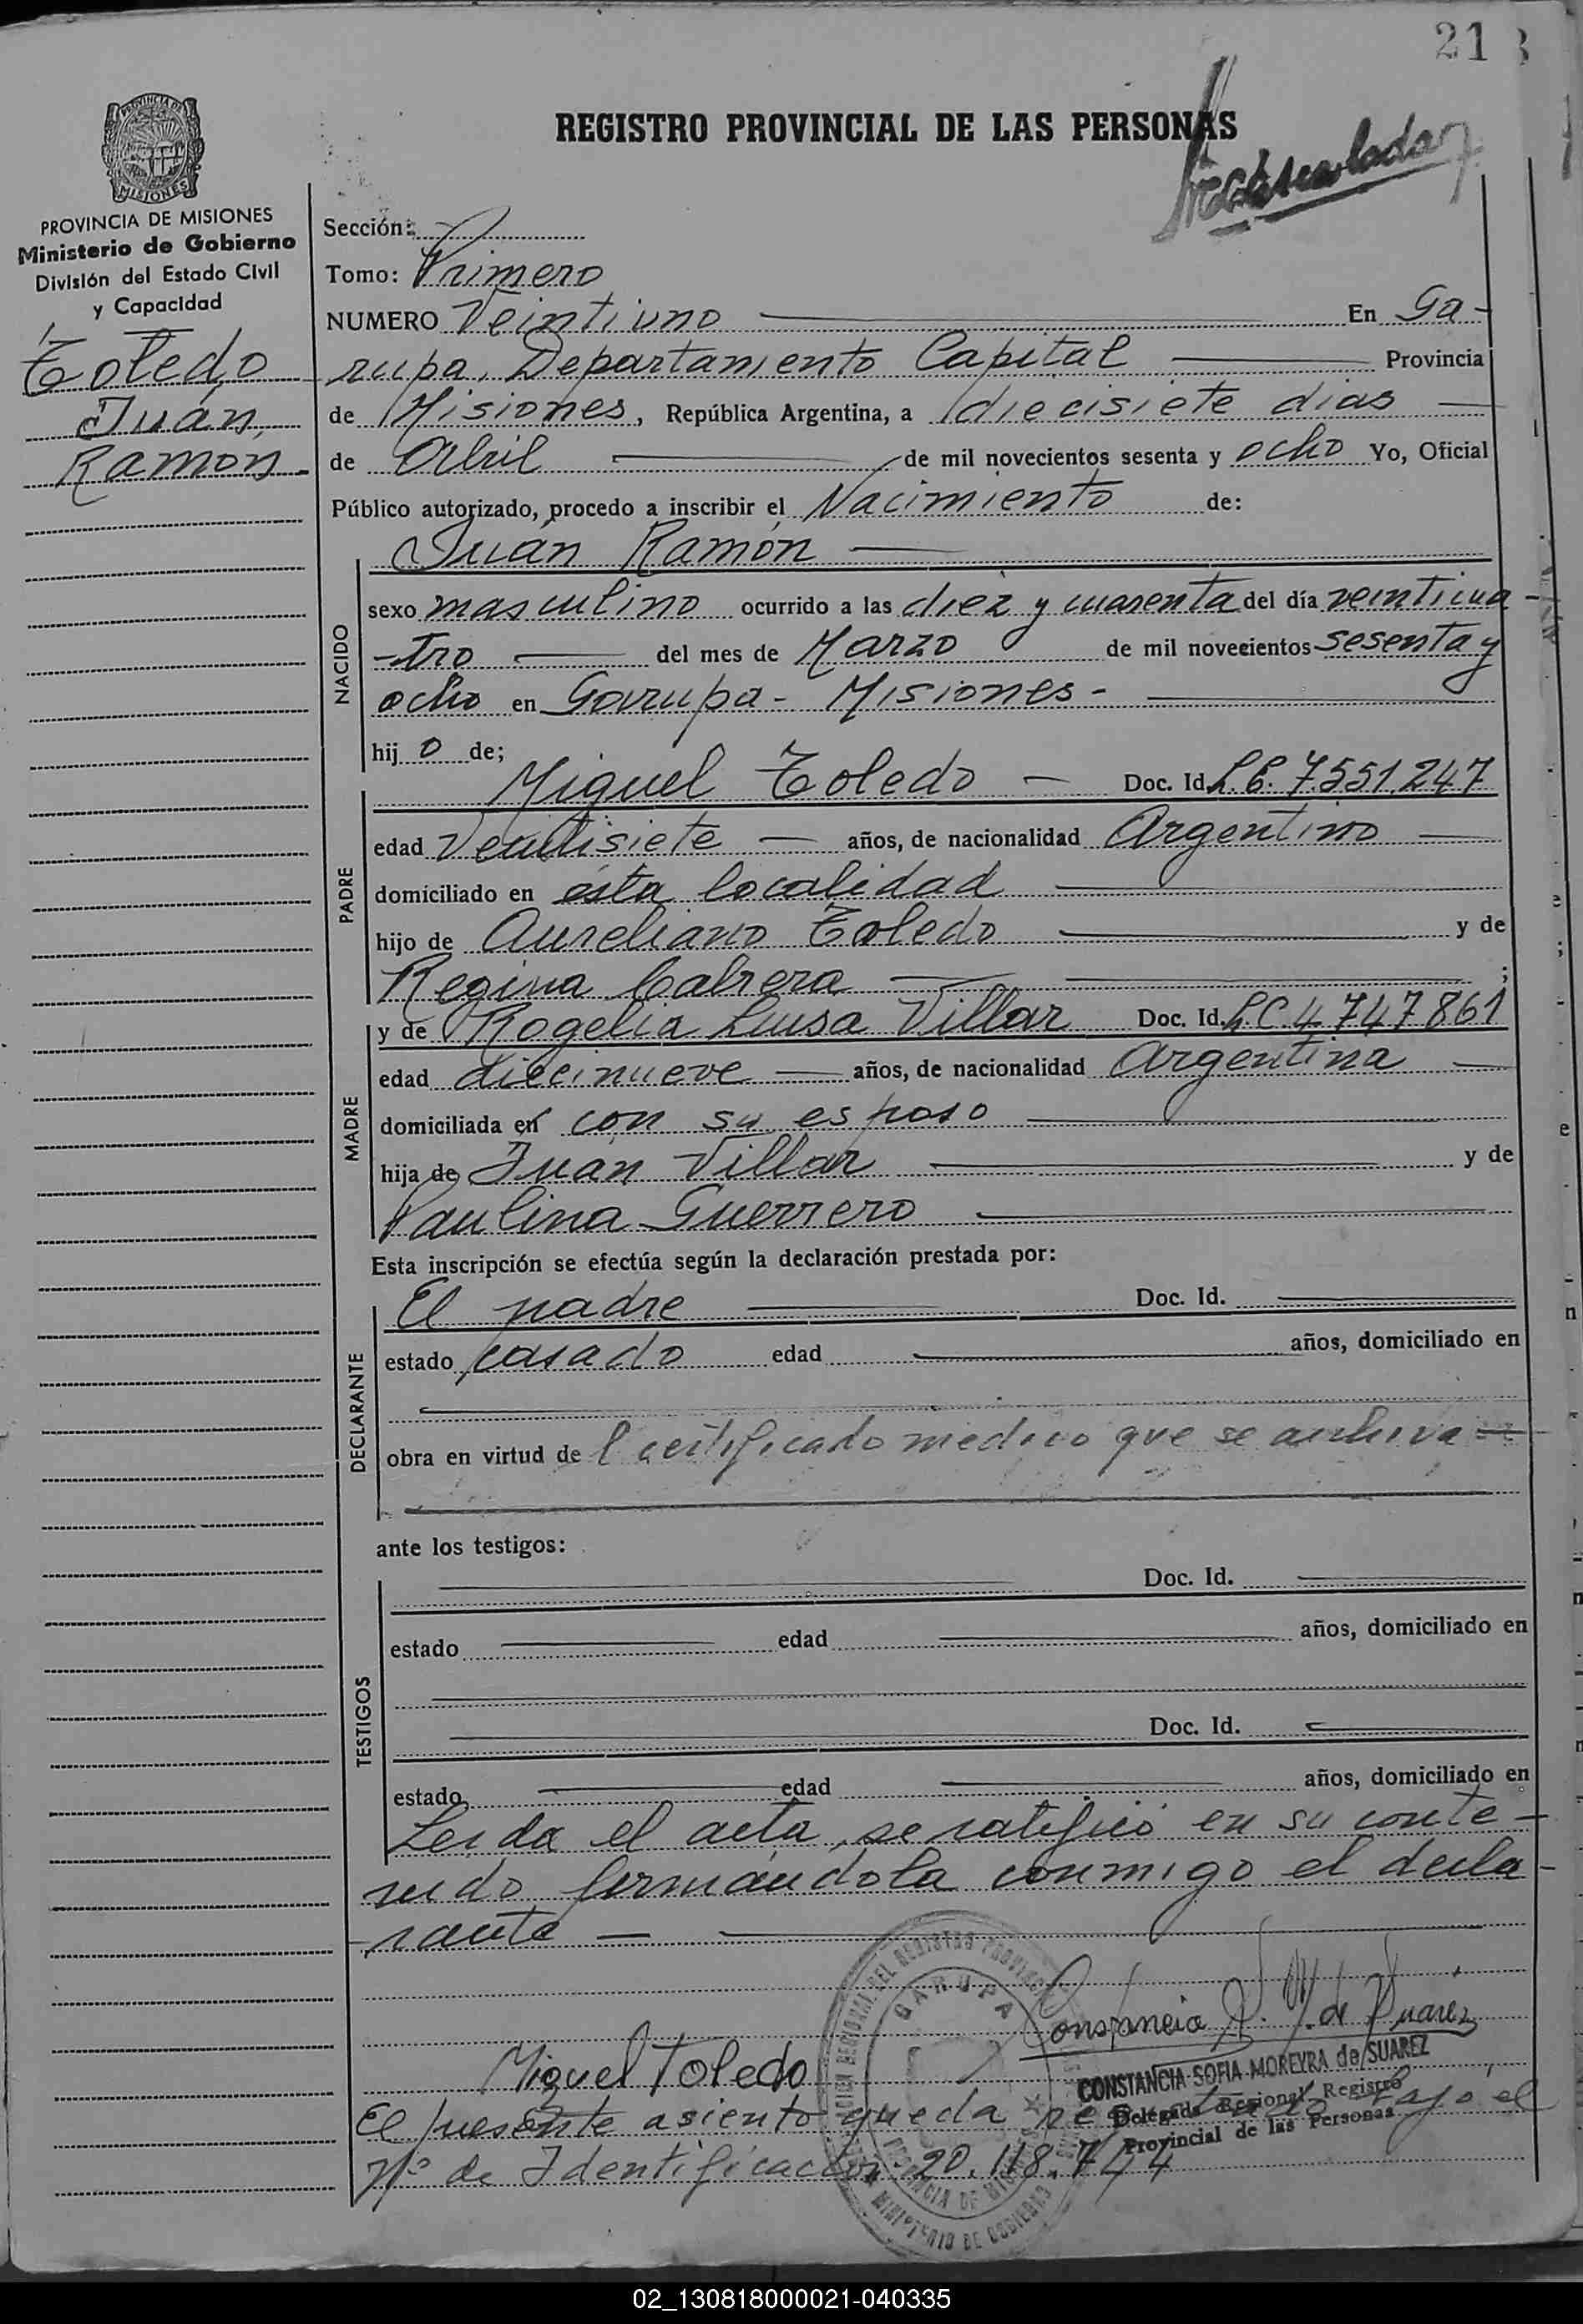 21
REGISTRO PROVINCIAL DE LAS PERSONAS
PROVINCIA DE
MISIONES
PROVINCIA DE MISIONES
Ministerio de Gobierno
División del Estado Civil
y Capacidad
Toledo
Juán
Ramón.
Sección:
Tomo: Primero
NUMERO Veintiuno En Ga-
rupa, Departamento Capital Provincia
de Misiones, República Argentina, a diecisiete dias
de Abril de mil novecientos sesenta y ocho Yo, Oficial
Público autorizado, procedo a inscribir el Nacimiento de:
NACIDO
Juán Ramón
sexo masculino ocurrido a las diez y cuarenta del día veinticua-
-tro del mes de Marzo de mil novecientos sesenta y
ocho en Garupa - Misiones -
hijo de;
PADRE
Miguel Toledo Doc. Id. L.E. 7.551.247
edad Veintisiete años, de nacionalidad Argentino
domiciliado en ésta localidad
hijo de Aureliano Toledo y de
Regina Cabrera ;
MADRE
y de Rogelia Luisa Villar Doc. Id. L.C. 4.747861
edad diecinueve años, de nacionalidad Argentina
domiciliada en con su esposo
hija de Juán Villar y de
Paulina Guerrero
Esta inscripción se efectúa según la declaración prestada por:
DECLARANTE
El padre Doc. Id.
estado casado edad años, domiciliado en
obra en virtud de l certificado medico que se archiva =
ante los testigos:
TESTIGOS
Doc. Id.
estado edad años, domiciliado en
Doc. Id.
estado edad años, domiciliado en
Leida el acta, se ratificó en su conte-
nido firmándola conmigo el decla-
rante
Constancia S. M. de Suarez
Miguel Toledo
CONSTANCIA SOFIA MOREYRA de SUAREZ
Delegada Regional Registro
Provincial de las Personas
GARUPA
PROVINCIA DE
MINISTERIO DE GOBIERNO
El presente asiento queda bajo el
Nº de Identificación 20.118.744
02_130818000021-040335